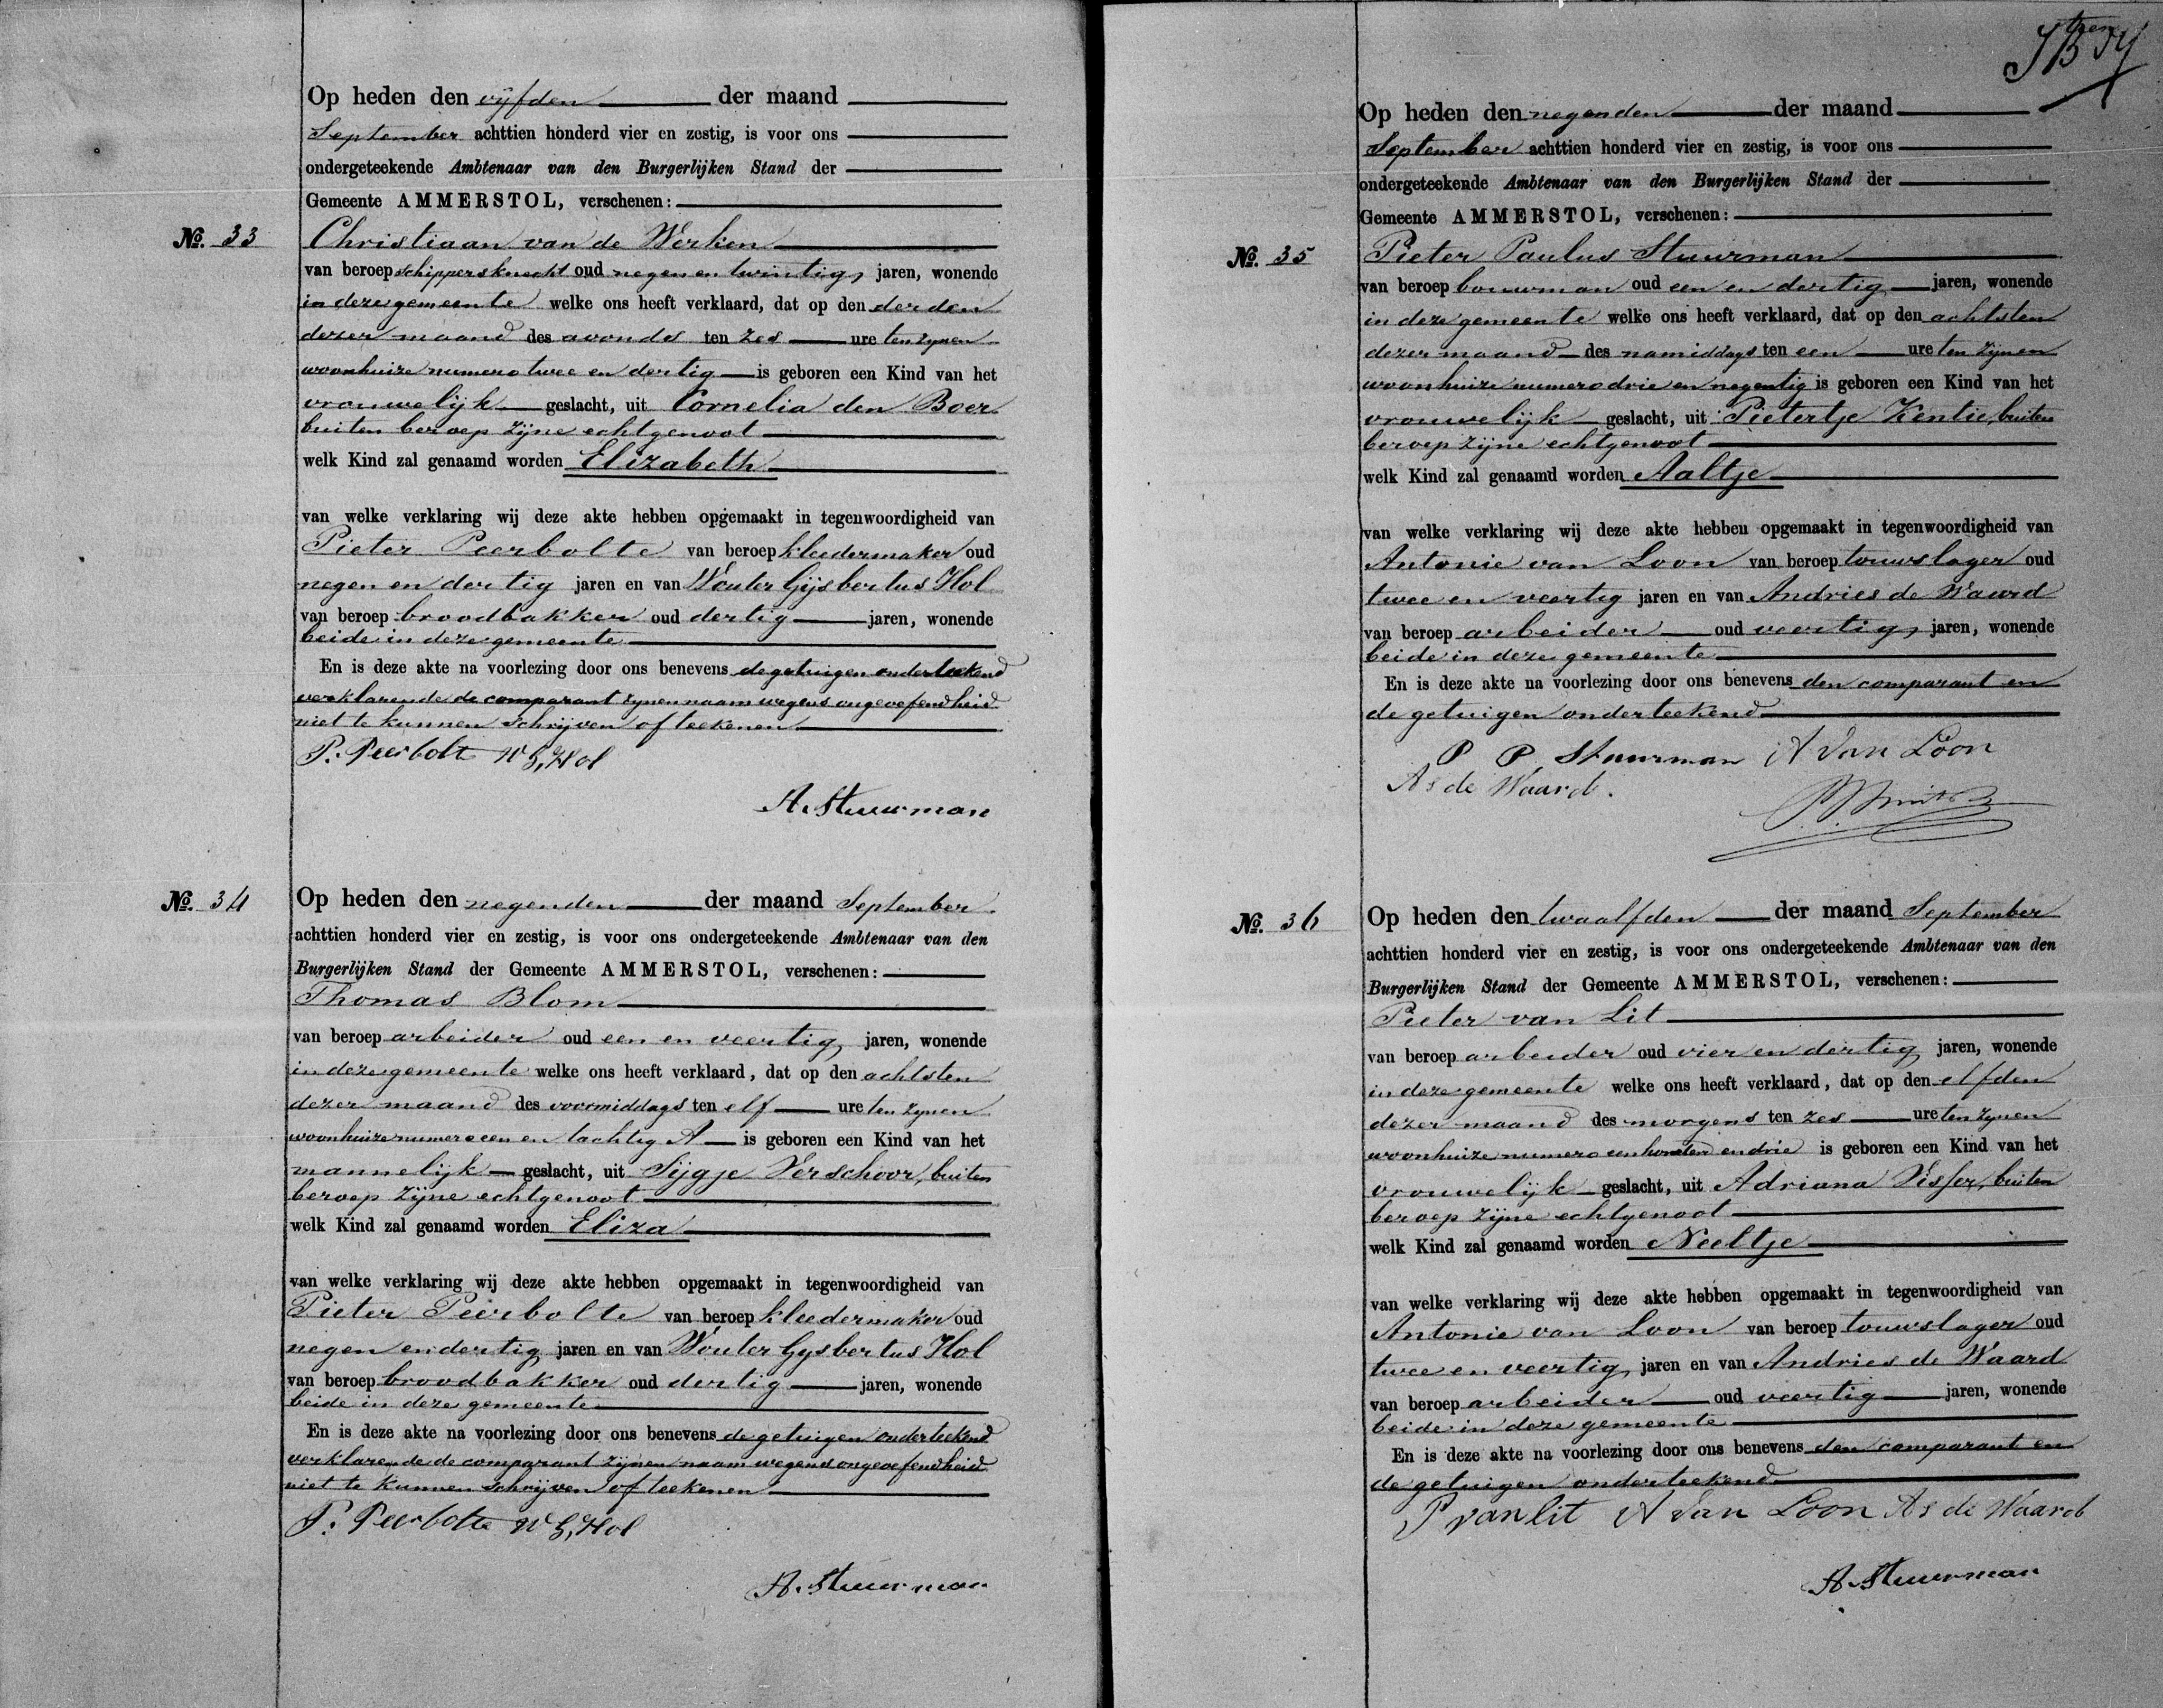 Op heden den vijfden der maand
September achttien honderd vier en zestig, is voor ons
ondergeteekende Ambtenaar van den Burgerlijken Stand der
Gemeente AMMERSTOL, verschenen:
No. 33 Christiaan van de Werken
van beroep schippersknecht oud negen en twintig jaren, wonende
in deze gemeente welke ons heeft verklaard, dat op den derden
dezer maand des avonds ten zes ure ten zijnen
woonhuize numero twee en dertig is geboren een Kind van het
vrouwelijk geslacht, uit Cornelia den Boer
buiten beroep zijne echtgenoot
welk Kind zal genaamd worden Elizabeth
van welke verklaring wij deze akte hebben opgemaakt in tegenwoordigheid van
Pieter Peerbolte van beroep kleedermaker oud
negen en dertig jaren en van Wouter Gijsbertus Hol
van beroep broodbakker oud dertig jaren, wonende
beide in deze gemeente
En is deze akte na voorlezing door ons benevens de getuigen onderteekend
verklarende de comparant zynen naam wegens ongeoefendheid
niet te kunnen schrijven of teekenen
P. Peerbolte W G, Hol
A. Stuurman
No. 34 Op heden den negenden der maand September
achttien honderd vier en zestig, is voor ons ondergeteekende Ambtenaar van den
Burgerlijken Stand der Gemeente AMMERSTOL, verschenen:
Thomas Blom
van beroep arbeider oud een en veertig jaren, wonende
in deze gemeente welke ons heeft verklaard, dat op den achtsten
dezer maand des voormiddags ten elf ure ten zynen
woonhuize numero een en tachtig A is geboren een Kind van het
mannelijk geslacht, uit Sijgje Verschoor, buiten
beroep zijne echtgenoot
welk Kind zal genaamd worden Eliza
van welke verklaring wij deze akte hebben opgemaakt in tegenwoordigheid van
Pieter Peerbolte van beroep kleedermaker oud
negen en dertig jaren en van Wouter Gysbertus Hol
van beroep broodbakker oud dertig jaren, wonende
beide in deze gemeente
En is deze akte na voorlezing door ons benevens de getuigen onderteekend
verklarende de comparant zijnen naam wegens ongeoefendheid
niet te kunnen schrijven of teekenen
P. Peerbolte W G, Hol
A. Stuurman
Op heden den negenden der maand
September achttien honderd vier en zestig, is voor ons
ondergeteekende Ambtenaar van den Burgerlijken Stand der
Gemeente AMMERSTOL, verschenen:
No. 35 Pieter Paulus Stuurman
van beroep bouwman oud een en dertig jaren, wonende
in deze gemeente welke ons heeft verklaard, dat op den achtsten
dezer maand des namiddags ten een ure ten zijnen
woonhuize numero drie en negentig is geboren een Kind van het
vrouwelijk geslacht, uit Pietertje Kentie, buiten
beroep zijne echtgenoot
welk Kind zal genaamd worden Aaltje
van welke verklaring wij deze akte hebben opgemaakt in tegenwoordigheid van
Antonie van Loon van beroep touwslager oud
twee en veertig jaren en van Andries de Waard
van beroep arbeider oud veertig jaren, wonende
beide in deze gemeente
En is deze akte na voorlezing door ons benevens den comparant en
de getuigen onderteekend
P P Stuurman A Van Loon
As de Waard.
No. 36 Op heden den twaalfden der maand September
achttien honderd vier en zestig, is voor ons ondergeteekende Ambtenaar van den
Burgerlijken Stand der Gemeente AMMERSTOL, verschenen:
Pieter van Lit
van beroep arbeider oud vier en dertig jaren, wonende
in deze gemeente welke ons heeft verklaard, dat op den elfden
dezer maand des morgens ten zes ure ten zynen
woonhuize numero een honderd en drie is geboren een Kind van het
vrouwelijk geslacht, uit Adriana Visser, buiten
beroep zijne echtgenoot
welk Kind zal genaamd worden Neeltje
van welke verklaring wij deze akte hebben opgemaakt in tegenwoordigheid van
Antonie van Loon van beroep touwslager oud
twee en veertig jaren en van Andries de Waard
van beroep arbeider oud veertig jaren, wonende
beide in deze gemeente
En is deze akte na voorlezing door ons benevens den comparant en
de getuigen onderteekend
P van lit A Van Loon As de Waard
A. Stuurman